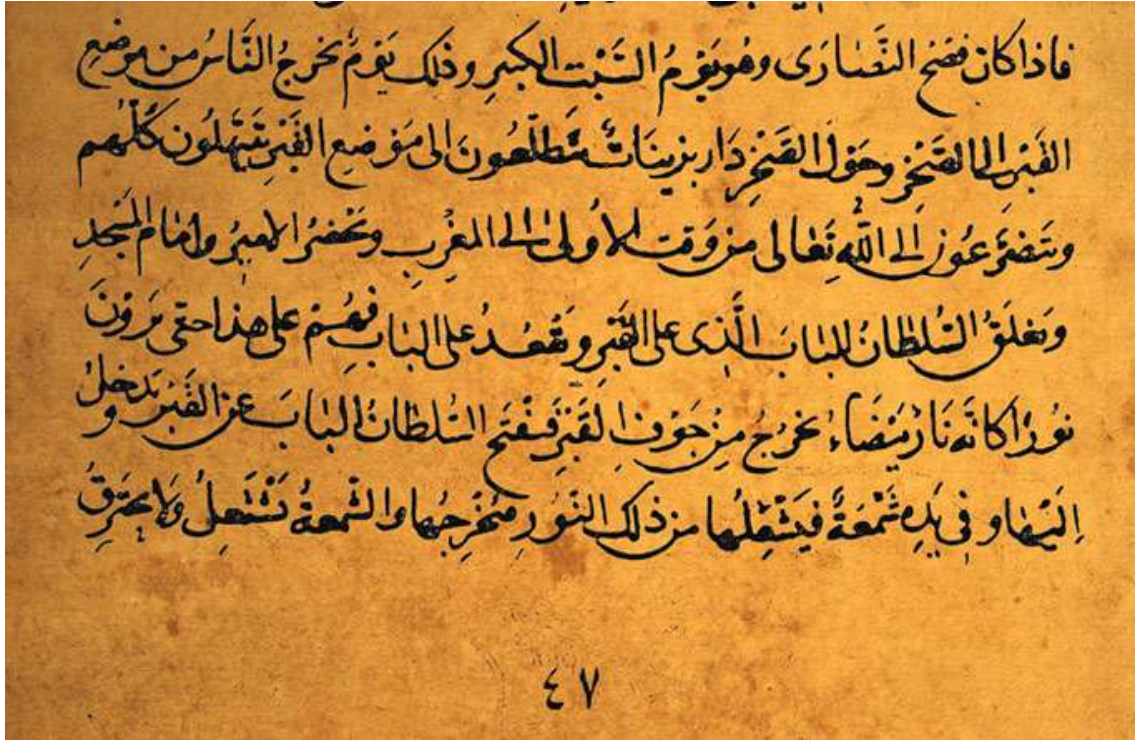 فاذا كان فصح النَّصَارَى وهو يَوْمُ السَّبْت الكبيرِ وذلك يَوْمٌ يخرجُ النَّاسُ من موضِع
القَبْرِ الى الصَّخْرِ وحَوْلَ الصَّخْرِ دَاربزينَاتٌ يتَطَلّعُونَ الى مَوْضِعِ القَبْرِ يَبْتَهِلُون كُلُّهم
ويتضَرَّعُون اِلى اللّٰهِ تَعَالى من وَقت الأُولى اِلى المَغْرِبِ ويَحْضرُ الاميرُ وامَام المَسْجِدِ
ويَغلَقُ السُّلطَانُ البَابَ الَّذِى على القَبْرِ ويَقْعُدُ على البَابِ فهُمْ على هذا حتى يَرَوْنَ
نُورًا كانّه نَارٌ بَيضَاءُ يخرُجُ مِنْ جَوْفِ القَبْرِ فيَفْتَح السُّلطَانُ البَابَ عن القَبْرِ ويَدخلُ
اِلَيْهَا وفِى يَدِهِ شَمْعَةٌ فيَشْعِلُها من ذلك النُّورِ فيُخْرِجُها والشَّمعَةُ تَشْتَعِلُ وَلا يحتَرِقُ
٤٧